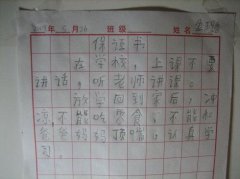 年5月20 班级 姓名
保证书
在学校，上课不要
讲话，听老师讲课。
放学回到家后，冲
凉，不能吃零食，不能和
爸爸妈妈顶嘴，认真学
习。